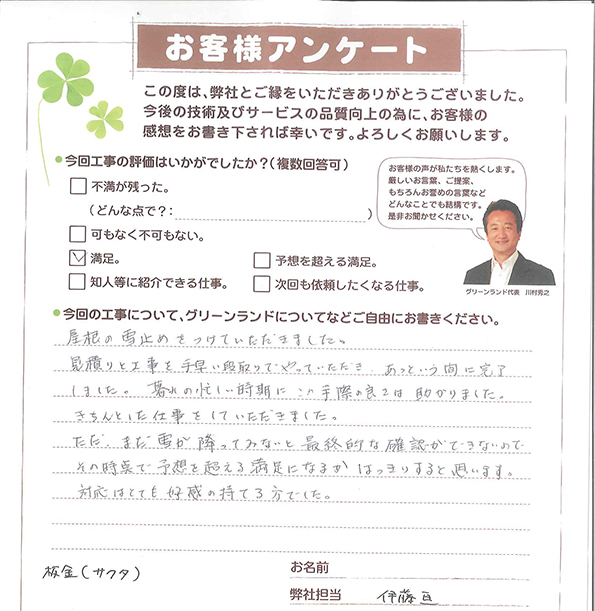 お客様アンケート
この度は、弊社とご縁をいただきありがとうございました。
今後の技術及びサービスの品質向上の為に、お客様の
感想をお書き下されば幸いです。よろしくお願いします。
今回工事の評価はいかがでしたか?(複数回答可)
不満が残った。
(どんな点で?: )
可もなく不可もない。
満足。
予想を超える満足。
知人等に紹介できる仕事。
次回も依頼したくなる仕事。
お客様の声が私たちを熱くします。
厳しいお言葉、ご提案、
もちろんお誉めの言葉など
どんなことでも結構です。
是非お聞かせください。
グリーンランド代表 川村秀之
今回の工事について、グリーンランドについてなどご自由にお書きください。
屋根の雪止めをつけていただきました。
見積りと工事を手早い段取りでやっていただき、あっという間に完了
しました。暮れの忙しい時期にこの手際の良さは助かりました。
きちんとした仕事をしていただきました。
ただ、まだ雪が降ってみないと最終的な確認ができないので
その時点で予想を超える満足になるかはっきりすると思います。
対応はとても好感の持てる方でした。
板金(サクタ)
お名前
弊社担当 伊藤亘